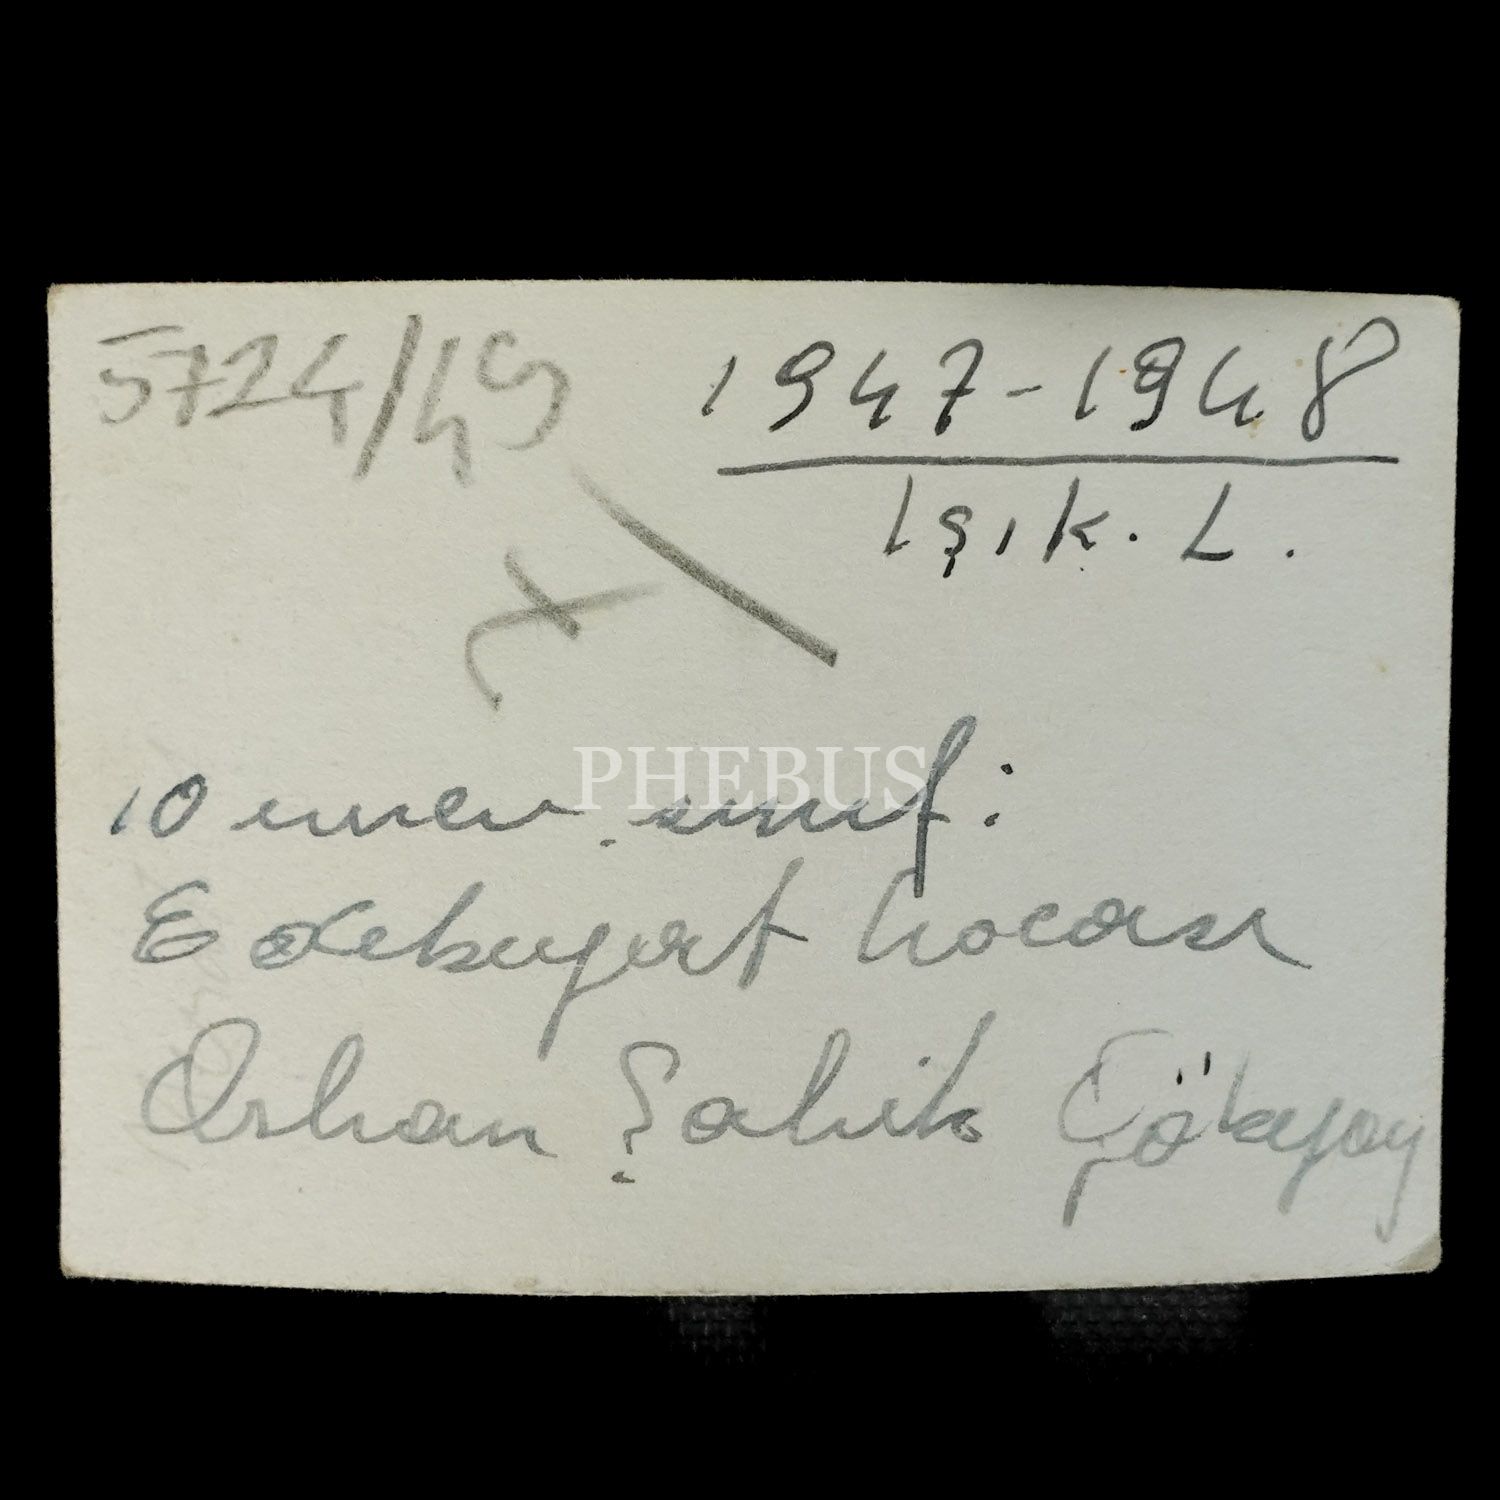 5724/49
1947-1948
Işık. L.
PHEBUS
10 uncu sınıf:
Edebiyat hocası
Orhan Şaik Gökyay